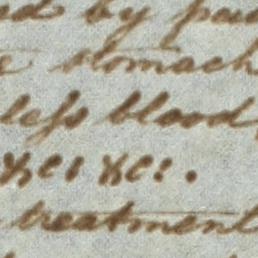 by pai
stomach
less blood
&c; &c:.
treatment